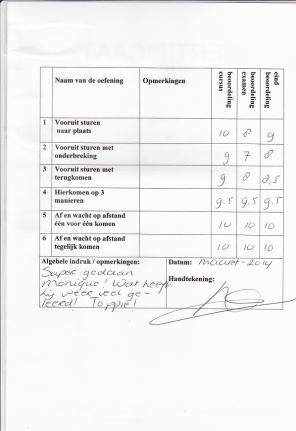 Naam van de oefening Opmerkingen beoordeling cursus beoordeling examen eind beoordeling
1 Vooruit sturen naar plaats 10 8 9
2 Vooruit sturen met onderbreking 9 7 8
3 Vooruit sturen met terugkomen 9 8 8,5
4 Hierkomen op 3 manieren 9.5 9.5 9.5
5 Af en wacht op afstand één voor één komen 10 10 10
6 Af en wacht op afstand tegelijk komen 10 10 10
Algehele indruk / opmerkingen: Datum: maart-2014
Super gedaan Handtekening:
Monique! Wat heeft
hij weer veel ge-
leerd! Toppie!